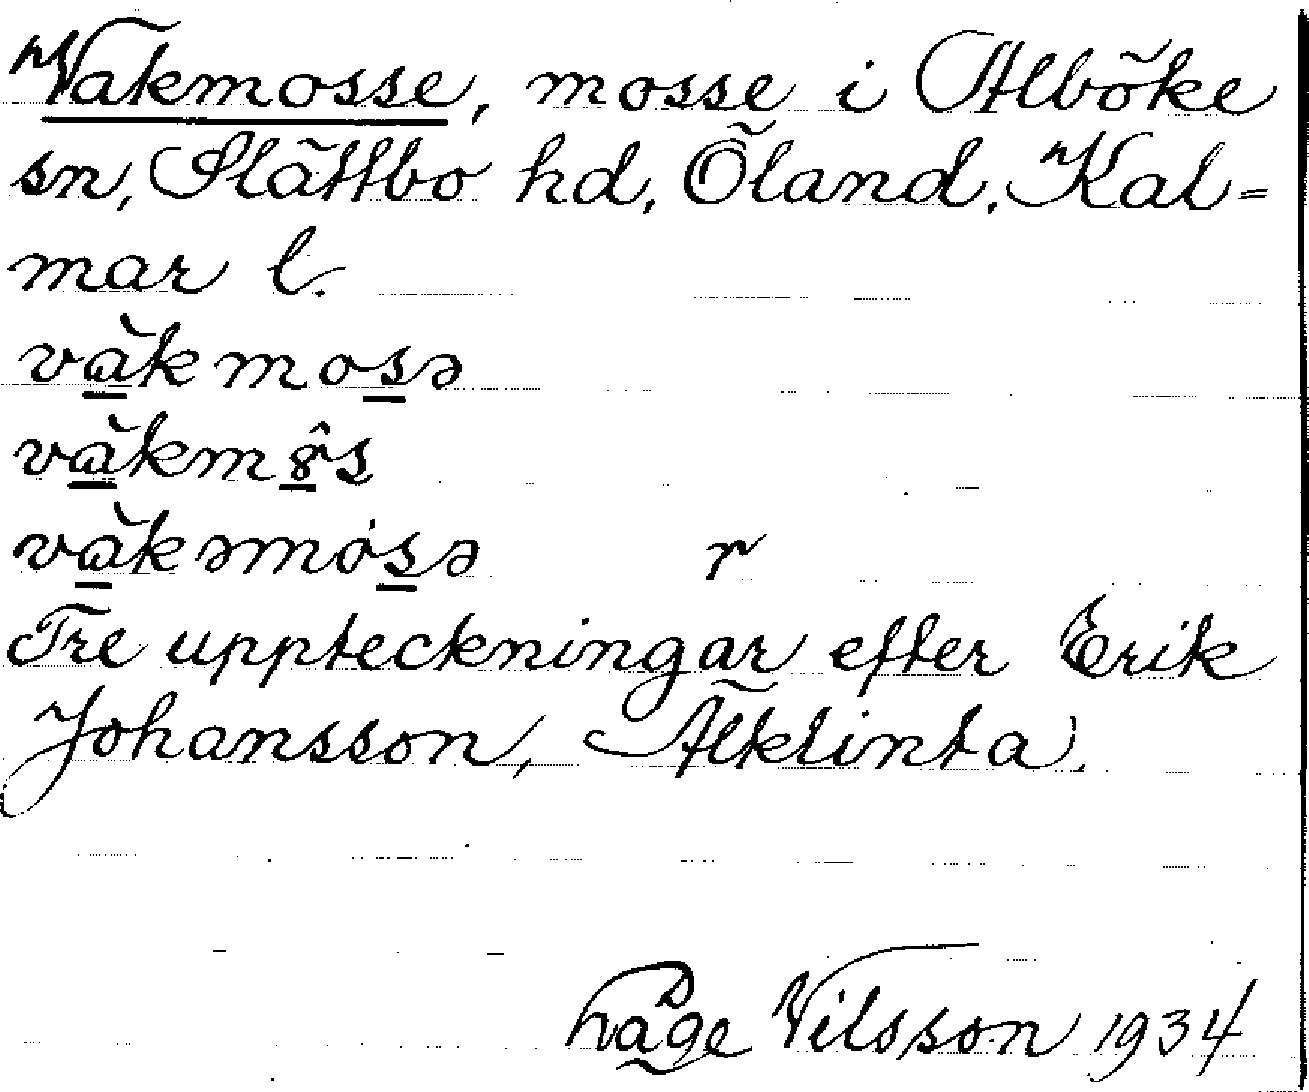 Vakmosse, mosse i Alböke
sn, Slättbo hd, Öland, Kal=
mar l.
våkmosə
våkms
våkəmósə r
Tre uppteckningar efter Erik
Johansson, Älklinta.
Låge Nilsson 1934